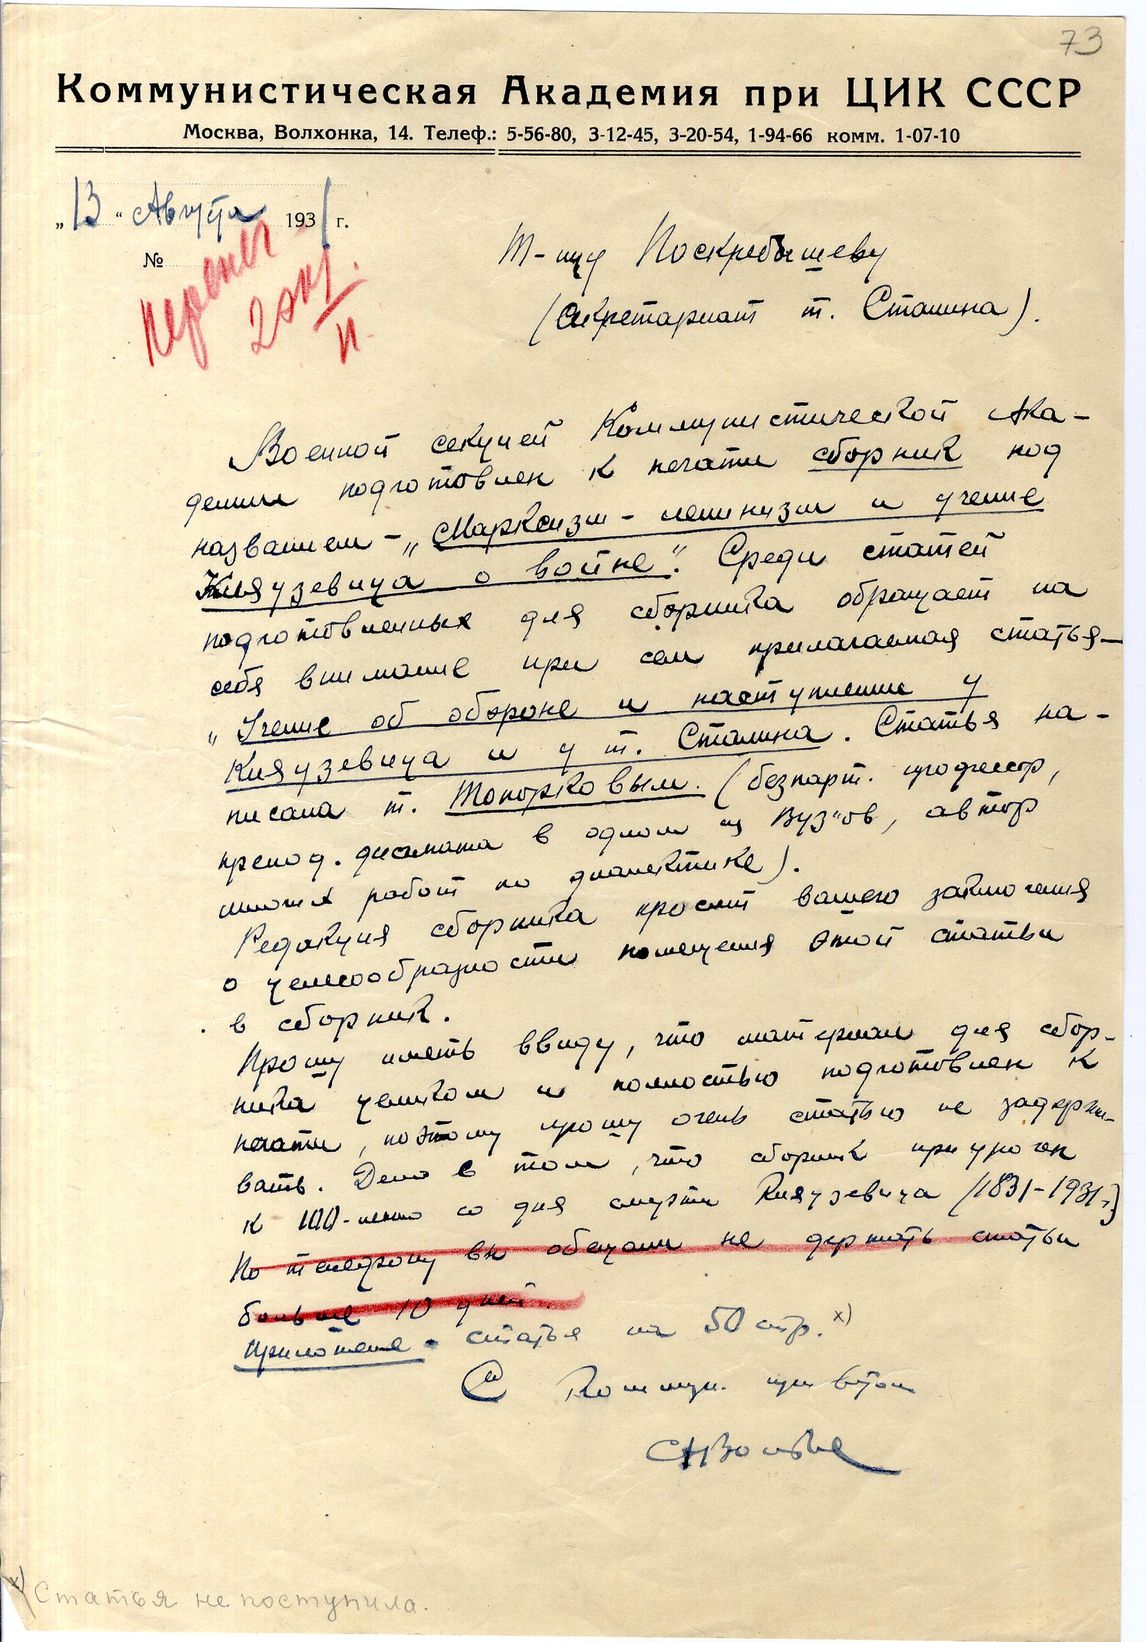 73
Коммунистическая Академия при ЦИК СССР
Москва, Волхонка, 14. Телеф.: 5-56-80, 3-12-45, 3-20-54, 1-94-66 комм. 1-07-10
„13“ Августа 1931 г.
№
2 экз.
П.
Т-щу Поскребышеву
(Секретариат т. Сталина).
Военной секцией Коммунистической Ака-
демии подготовлен к печати сборник под
названием – „Марксизм-ленинизм и учение
Клаузевица о войне“. Среди статей
подготовленных для сборника обращает на
себя внимание при сем прилагаемая статья –
„Учение об обороне и наступлении у
Клаузевица и у т. Сталина. Статья на-
писана т. Топорковым. (безпарт. профессор,
препод. диамата в одном из Вуз"ов, автор
многих работ по диалектике).
Редакция сборника просит вашего заключения
о целесообразности помещения этой статьи
в сборник.
Прошу иметь ввиду, что материал для сбор-
ника целиком и полностью подготовлен к
печати, поэтому прошу очень статью не задержи-
вать. Дело в том, что сборник приурочен
к 100-летию со дня смерти Клаузевица (1831-1931г.)
По телефону вы обещали не держать статьи
больше 10 дней.
Приложение – статья на 50 стр. х)
С Коммун. приветом
х) Статья не поступила.